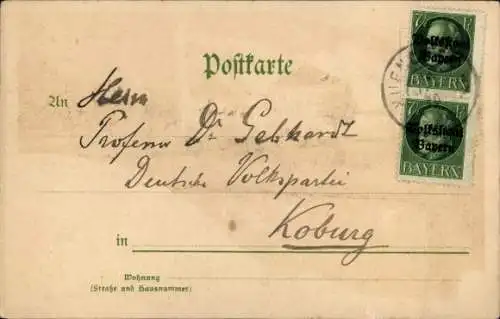 Postkarte
Volksstaat
Bayern
BAYERN
Volksstaat
Bayern
BAYERN
An Herrn
Professor Dr Gebhardt
Deutsche Volkspartei
Koburg
in
Wohnung
(Straße und Hausnummer)